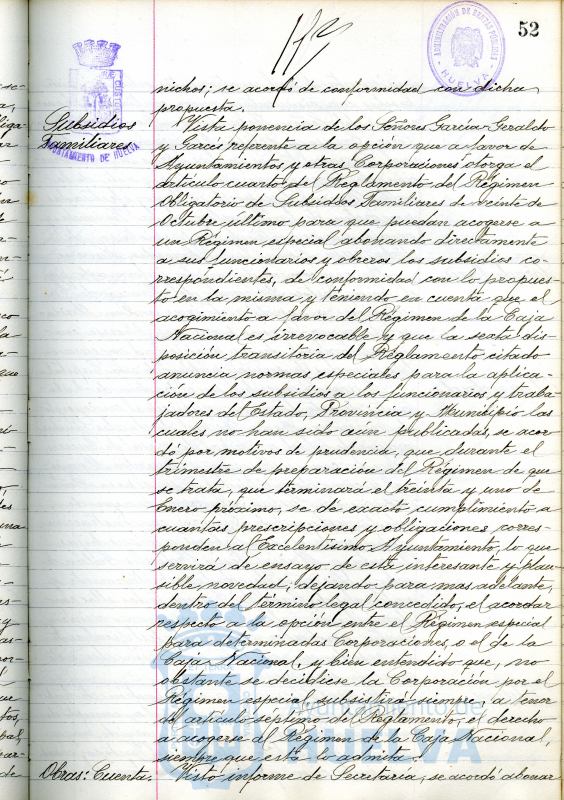 52
ADMINISTRACIÓN DE RENTAS PÚBLICAS
HUELVA
AYUNTAMIENTO DE HUELVA
nichos; se acordó de conformidad con dicha
propuesta.
Subsidios
Familiares
Vista ponencia de los Señores García-Geraldo
y Garcés referente a la opción que a favor de
Ayuntamientos y otras Corporaciones otorga el
artículo cuarto del Reglamento del Régimen
Obligatorio de Subsidios Familiares de veinte de
Octubre último para que puedan acogerse a
un Régimen especial abonando directamente
a sus funcionarios y obreros los subsidios co-
rrespondientes, de conformidad con lo propues-
to en la misma y teniendo en cuenta que el
acogimiento a favor del Régimen de la Caja
Nacional es irrevocable y que la sexta dis-
posición transitoria del Reglamento citado
anuncia normas especiales para la aplica-
ción de los subsidios a los funcionarios y traba-
jadores del Estado, Provincia y Municipio las
cuales no han sido aún publicadas, se acor-
dó por motivos de prudencia, que durante el
trimestre de preparación del Régimen de que
se trata, que terminará el treinta y uno de
Enero próximo, se de exacto cumplimiento a
cuantas prescripciones y obligaciones corres-
ponden al Excelentísimo Ayuntamiento, lo que
servirá de ensayo de esta interesante y plau-
sible novedad; dejando para mas adelante,
dentro del término legal concedido, el acordar
respecto a la opción entre el Régimen especial
para determinadas Corporaciones, o el de la
Caja Nacional, y bien entendido que, no
obstante se decidiese la Corporación por el
Régimen especial, subsistirá siempre, a tenor
de artículo séptimo del Reglamento, el derecho
a acogerse al Régimen de la Caja Nacional,
siempre que esta lo admita.
Obras: Cuenta.
Visto informe de Secretaría, se acordó abonar
Ayuntamiento de
HUELVA